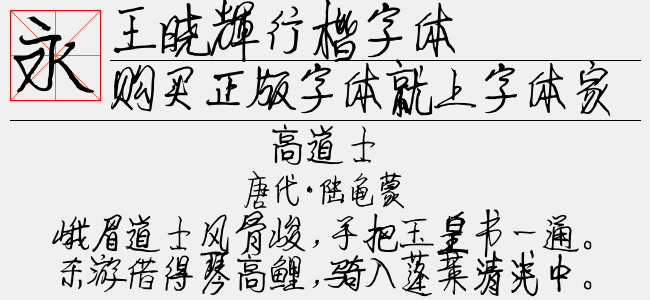 永
王晓辉行楷字体
购买正版字体就上字体家
高道士
唐代·陆龟蒙
峨眉道士风骨峻，手把玉皇书一通。
东游借得琴高鲤，骑入蓬莱清浅中。